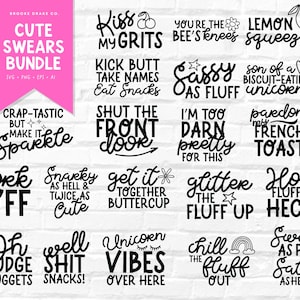 BROOKE BRAKE CO.
CUTE
SWEARS
BUNDLE
SVG • PNG • EPS • AI
Kiss
MY GRITS
YOU'RE THE
BEE'S knees
LEMON
squeez
KICK BUTT
TAKE NAMES
Eat Snacks
Sassy
AS FLUFF
son of a
BISCUIT-EATI
unicorn
CRAP-TASTIC
BUT
MAKE IT
Sparkle
SHUT THE
FRONT
door
I'M TOO
DARN
pretty
FOR THIS
pardon
my
FRENCH
TOAST
FF
Snarky
AS HELL &
TWICE AS
Cute
get it
TOGETHER
BUTTERCUP
glitter
THE
FLUFF UP
Ho
FLUFF
HEC
Oh
UDGE
UGGETS
well
SHIT
SNACKS!
Unicorn
VIBES
OVER HERE
chill
the
fluff
OUT
AS F
AS H